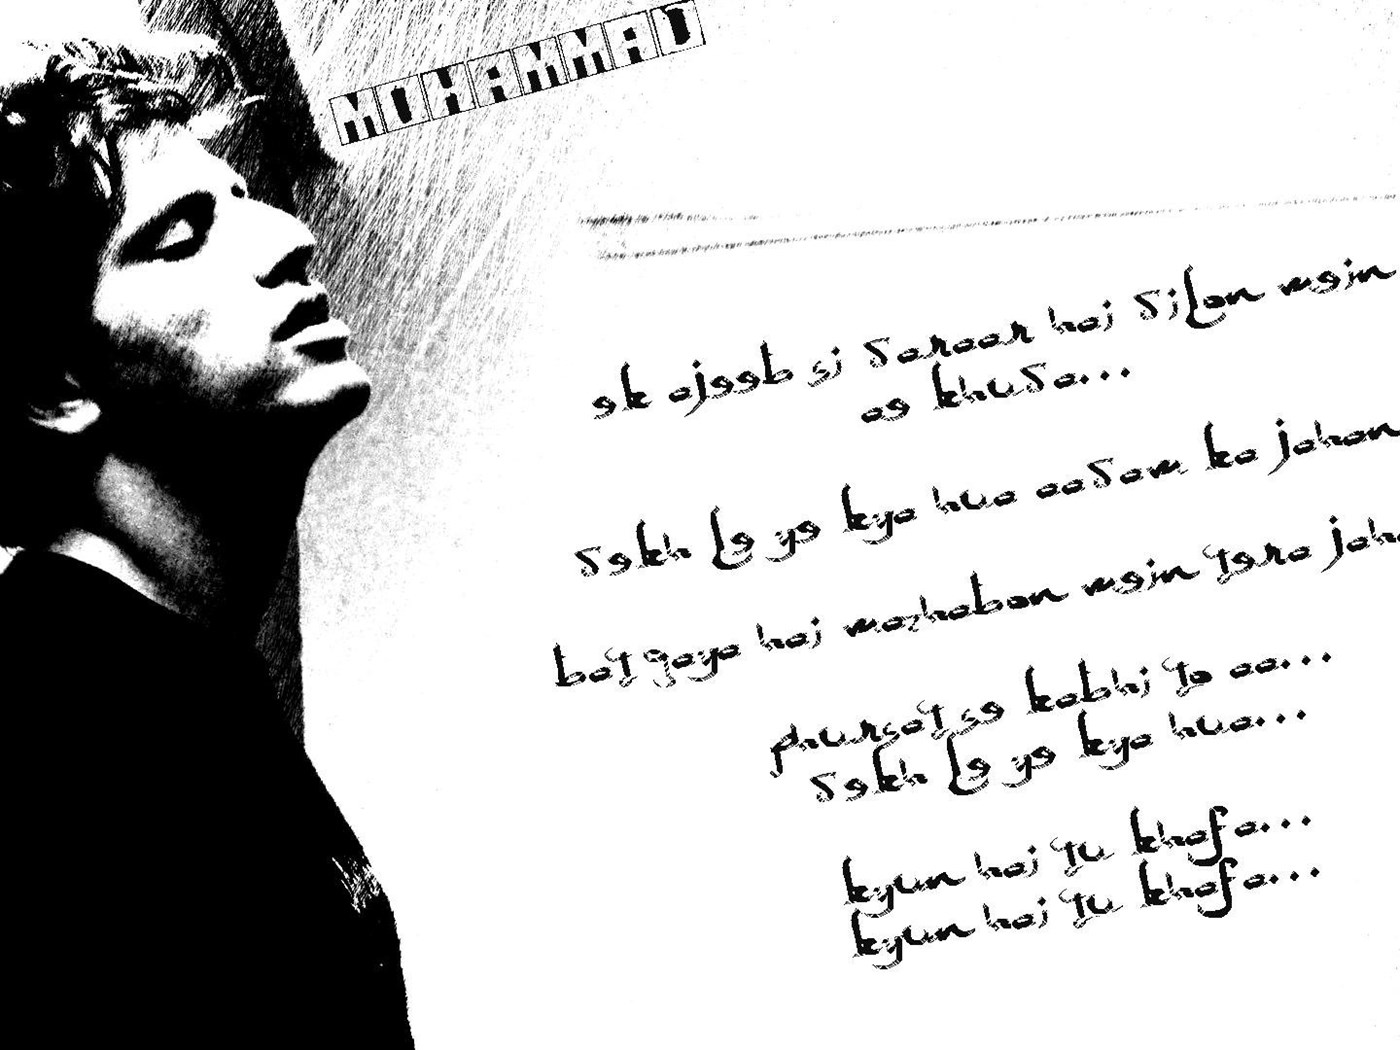 MOHAMMAD
ek ajeeb si daraar hai dilon mein
ae khuda...
dekh le ye kya hua aadam ka jahan
bat gaya hai mazhabon mein tera
phursat se kabhi to aa...
dekh le ye kya hua...
kyun hai tu khafa...
kyun hai tu khafa...